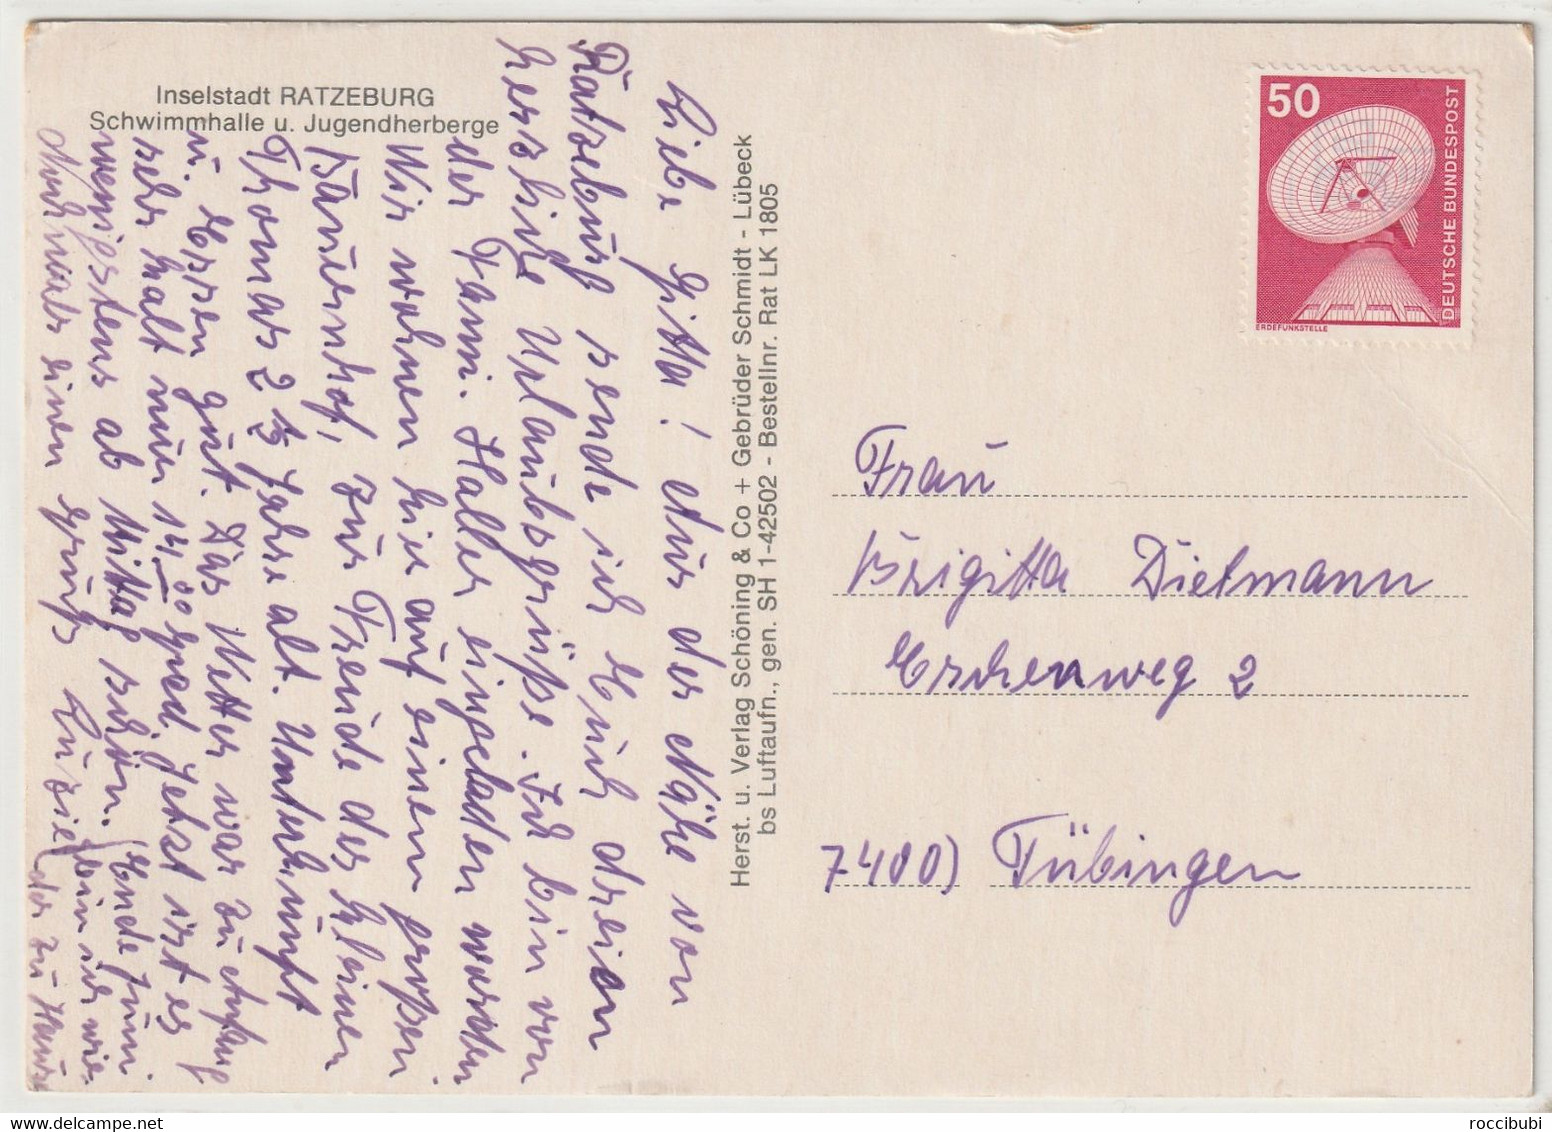 Inselstadt RATZEBURG
Schwimmhalle u. Jugendherberge
Liebe Gitta! Aus der Nähe von
Ratzeburg sende ich Euch dreien
herzliche Urlaubsgrüße. Ich bin von
der Fam. Haller eingeladen worden
Wir wohnen hier auf einem großen
Bauernhof, zur Freude der kleinen
Thomas 2 ½ Jahre alt. Unterkunft
u. Essen gut. Das Wetter war zu Anfang
sehr kalt nur 14 00 Grad. Jetzt ist es
wenigstens ab Mittag schön. Ende Juni
bin ich wieder zu Hause
Nochmals einen Gruß Luzie
Herst. u. Verlag Schöning & Co + Gebrüder Schmidt - Lübeck
bs Luftaufn., gen. SH 1-42502 - Bestellnr. Rat LK 1805
50
DEUTSCHE BUNDESPOST
ERDEFUNKSTELLE
Frau
Brigitta Dietmann
Eschenweg 2
7400) Tübingen
roccibubi